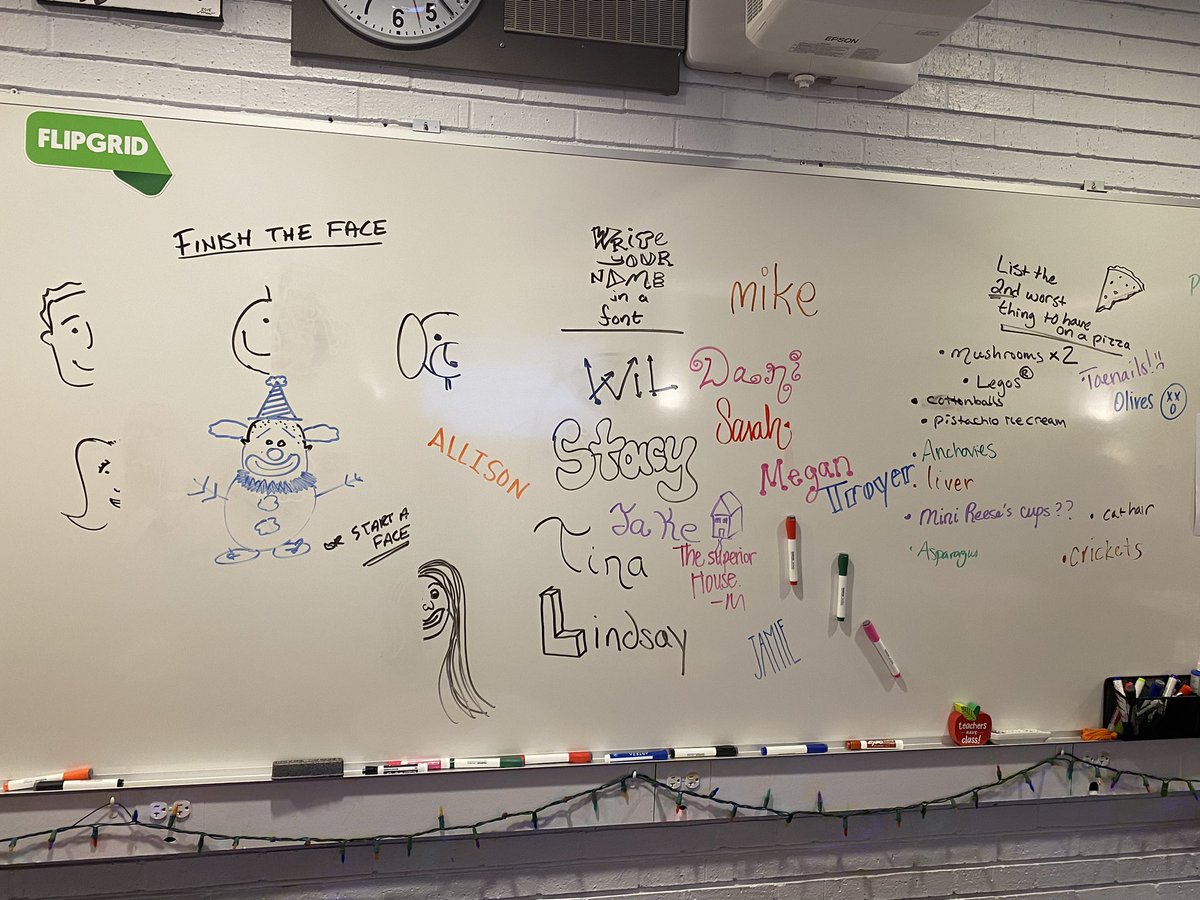 6 5
EPSON
FLIPGRID
FINISH THE FACE
OR START A
FACE
WRITE
YOUR
NAME
in a
font
mike
WIL
Dani
Sarah
ALLISON
Stacy
Megan
Troyer
Jake
Tina
The superior
House.
-M
Lindsay
JAMIE
List the
2nd worst
thing to have
on a pizza
• Mushrooms x2
• Legos®
• cottonballs
• pistachio ice cream
• Toenails!
Olives
x x
o
• Anchovies
• liver
• Mini Reese's cups??
• cat hair
• Asparagus
• crickets
P
teachers
HAVE
class!
EXPO